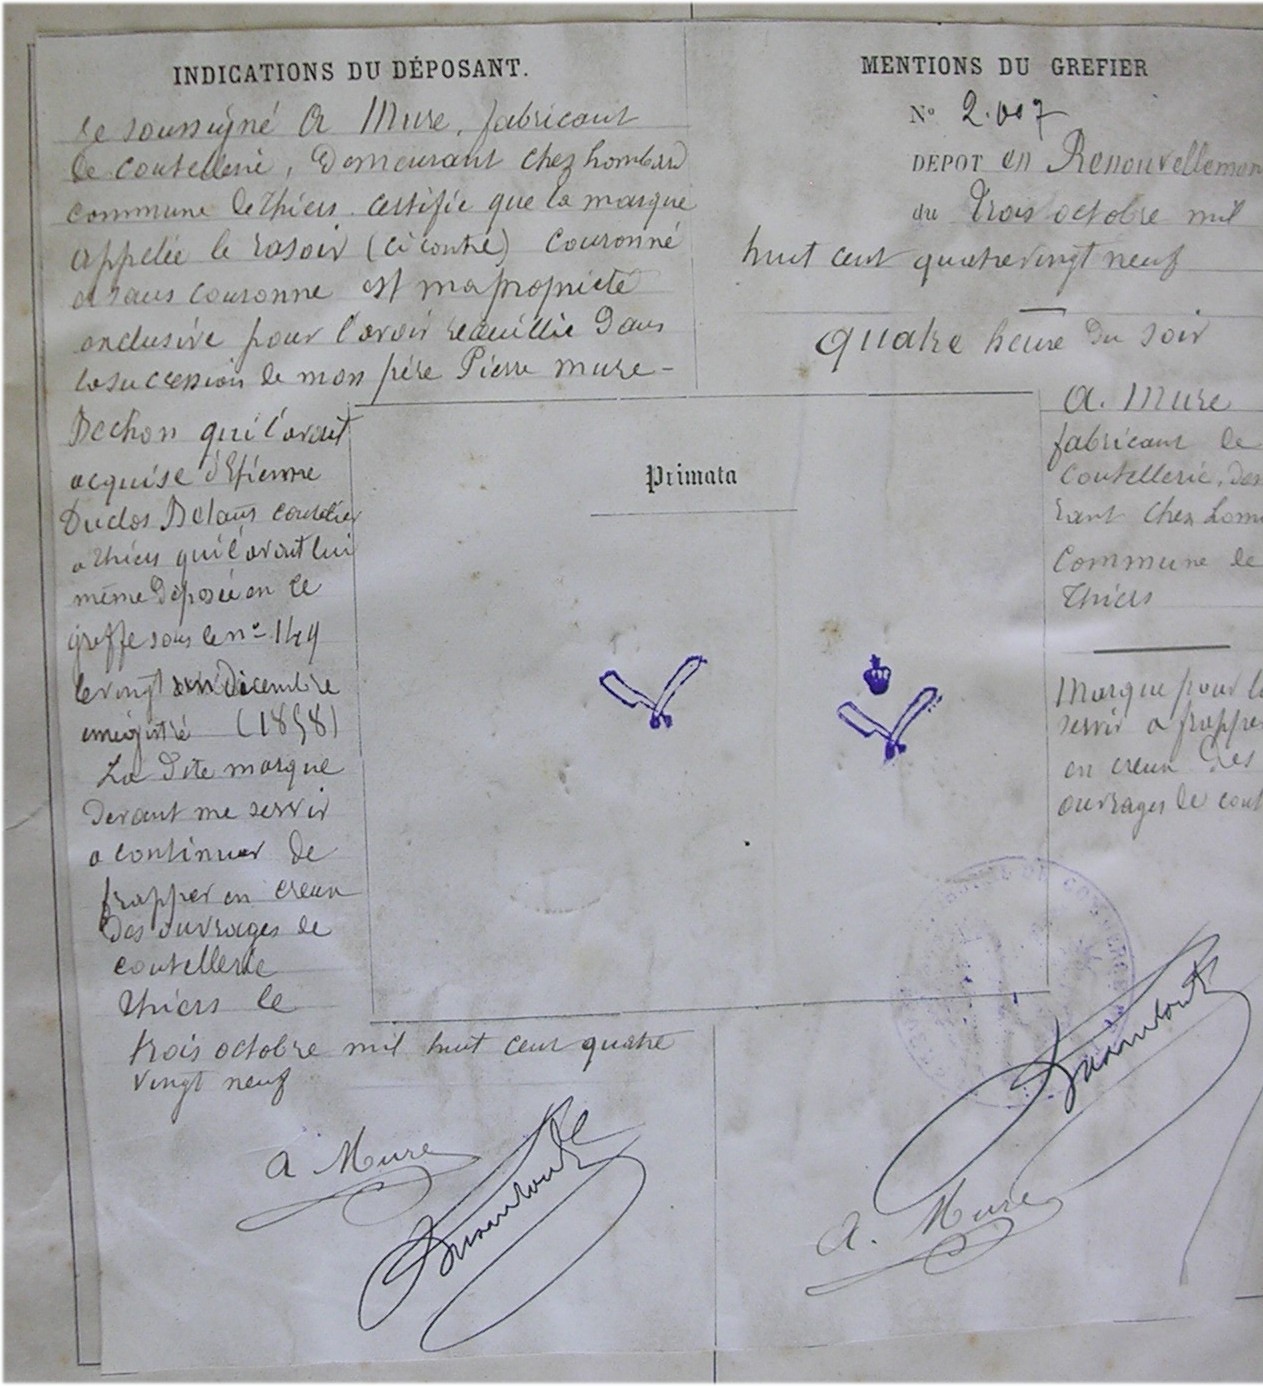 INDICATIONS DU DÉPOSANT.
Je soussigné A Mure, fabricant
de coutellerie, Demeurant chez Lombard
commune de Thiers certifie que la marque
appelée le rasoir (ci contre) couronné
et sans couronne est ma propriété
exclusive pour l'avoir recueillie Dans
la succession de mon père Pierre Mure-
Dechon qui l'avait
acquise d'Etienne
Duclos Delaus coutelier
a Thiers qui l'avait lui
même Déposée en ce
greffe sous le n° 149
le vingt Décembre
enregistré (1858)
La Dite marque
Devant me servir
a continuer de
frapper en creux
Des ouvrages de
coutellerie
Thiers le
trois octobre mil huit cent quatre
vingt neuf
A Mure
MENTIONS DU GREFIER
N° 2.007
DEPOT en Renouvellemen
du Trois octobre mil
huit cent quatrevingt neuf
quatre heure Du soir
A. Mure
fabricant de
Coutellerie, Dem
rant chez Lom
Commune de
Thiers
Marque pour l
servir a frapper
en creux Des
ouvrages de cout
A. Mure
Primata